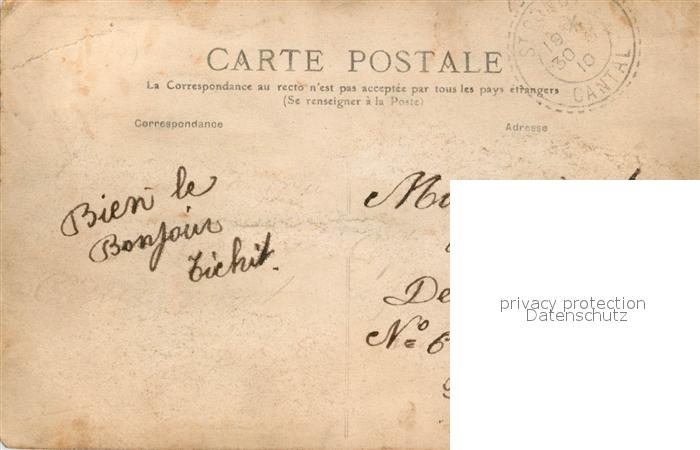 CARTE POSTALE
La Correspondance au recto n'est pas acceptée par tous les pays étrangers
(Se renseigner à la Poste)
Correspondance
Adresse
19
30
10
CANTAL
Bien le
Bonjour
Tichit.
De
Nº 6
privacy protection
Datenschutz